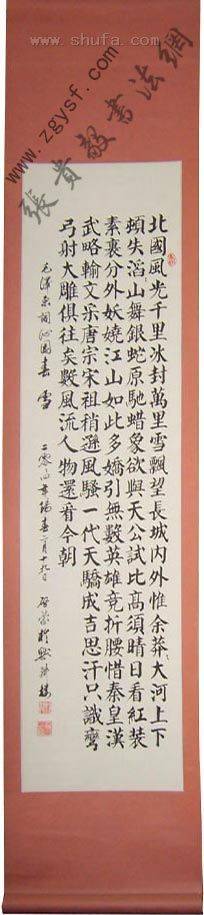 www.shufa.com
www.zgysf.com
張貴毅書法網
北國風光千里冰封萬里雪飄望長城內外惟余莽大河上下
頓失滔山舞銀蛇原馳蠟象欲與天公試比高須晴日看紅裝
素裹分外妖嬈江山如此多嬌引無數英雄競折腰惜秦皇漢
武略輸文采唐宗宋祖稍遜風騷一代天驕成吉思汗只識彎
弓射大雕俱往矣數風流人物還看今朝
毛澤東詞沁園春 雪 二零
年 春二月十九日